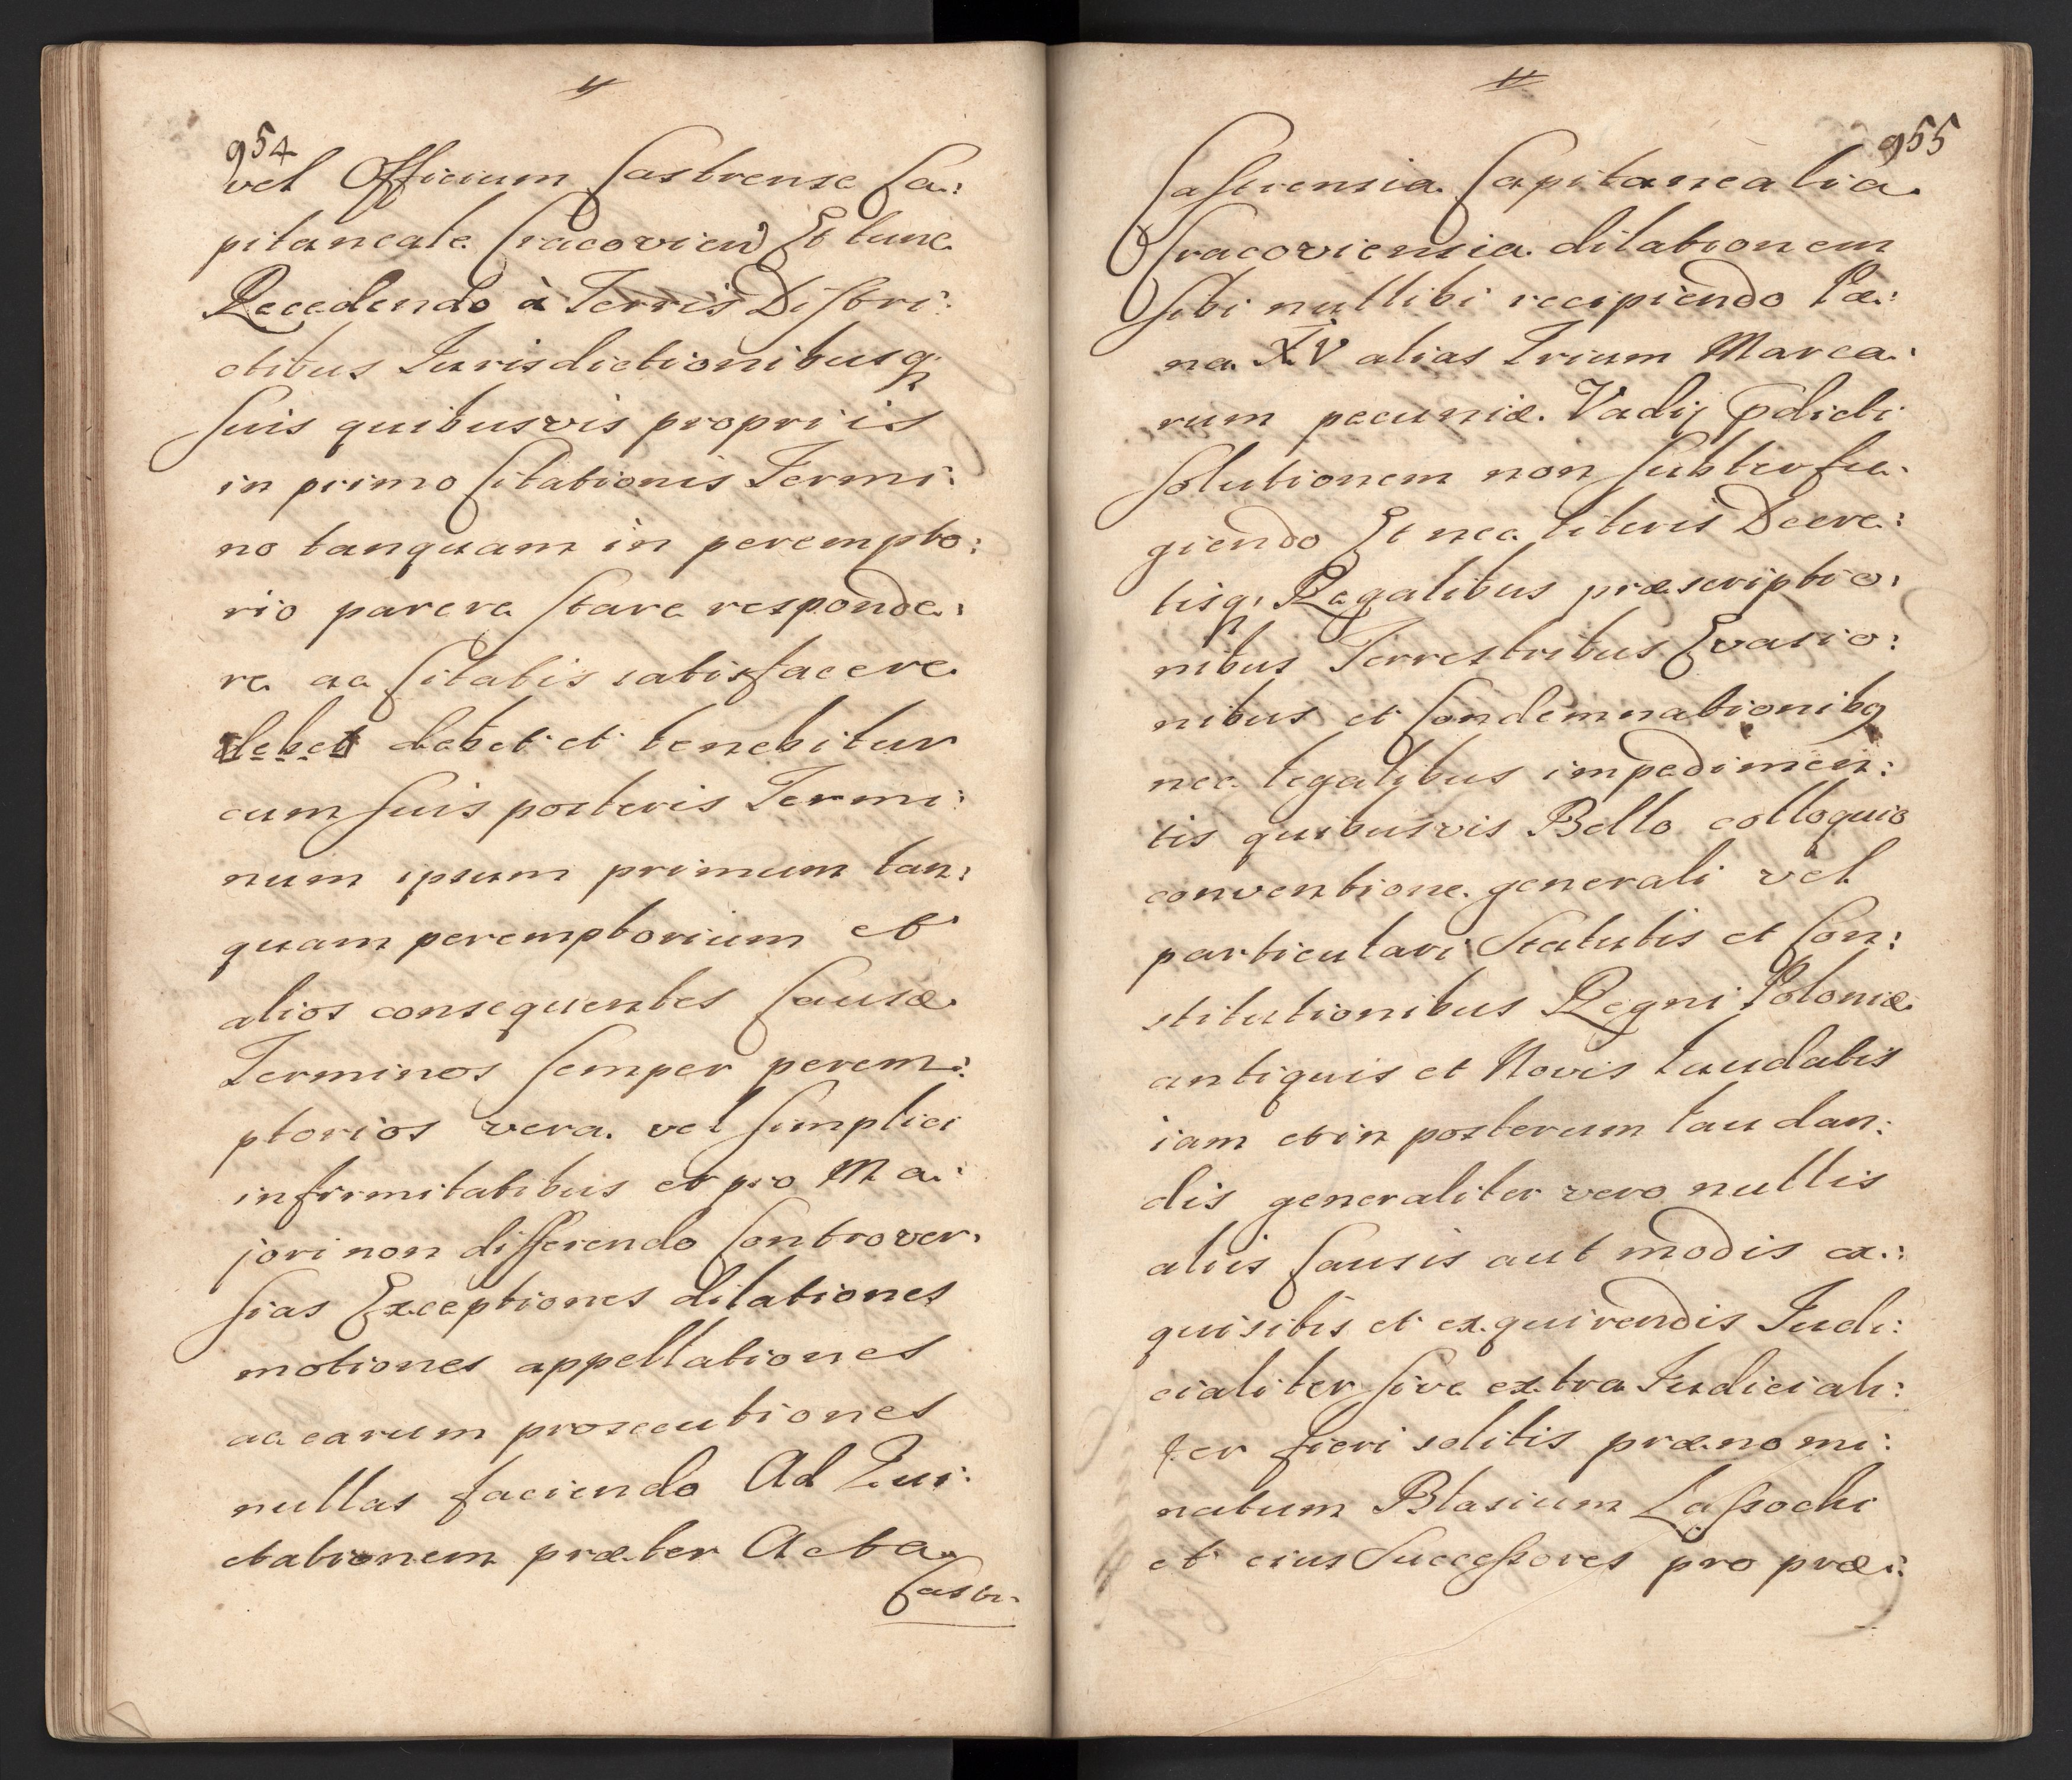 954
vel Officium Castrense Ca:
pitaneale Cracovien Et tunc
Recedendo à Terris Distri:
ctibus Iurisdictionibusq
suis quibusvis propriis
in primo Citationis Termi:
no tanquam in perempto:
rio parere stare responde:
re ac Citatis satisfacere
debet debet et tenebitur
cum suis posteris Termi:
num ipsum primum tan:
quam peremptorium et
alios consequentes Causæ
Terminos semper perem:
ptorios vera vel simplici
infirmitatibus et pro Ma:
jori non differendo Controver:
sias Exceptiones dilationes
motiones appellationes
ac earum prosecutiones
nullas faciendo Ad Qui:
etationem præter Acta
Castr:
955
Castrensia Capitanealia
Cracoviensia dilationem
sibi nullibi recipiendo Pæ:
na XV alias Trium Marca:
rum pecuniæ Vadij pdicti
solutionem non subterfu:
giendo Et nec literis Decre:
tisq Regalibus præscriptio:
nibus Terrestribus Evasio:
nibus et Condemnationibq
nec legalibus impedimen:
tis quibusvis Bello colloquio
conventione generali vel
particulari Statutis et Con:
stitutionibus Regni Poloniæ
antiquis et Novis laudatis
iam et in posterum laudan:
dis generaliter vero nullis
aliis Causis aut modis ex:
quisitis et exquirendis Iudi:
cialiter sive extra Iudiciali:
ter fieri solitis prænomi:
natum Blasium Lassochi
et eius Successores pro præ: